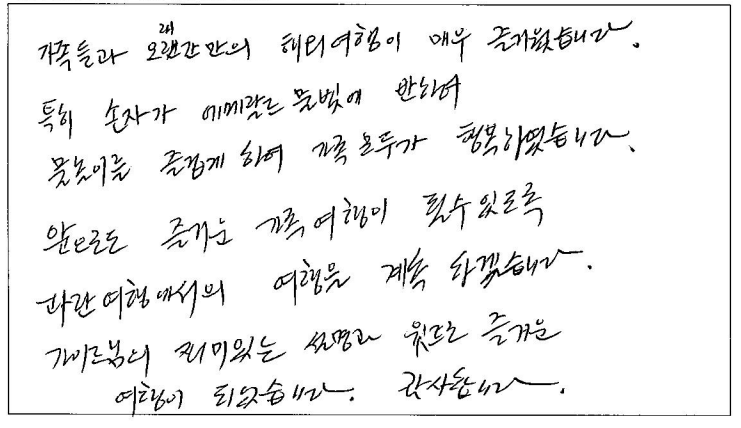 가족들과 오랜간만의 해외여행이 매우 즐거웠습니다.
특히 손자가 에메랄드 물빛에 반하여
물놀이를 즐겁게 하여 가족 모두가 행복하였습니다.
앞으로도 즐거운 가족여행이 될수있도록
파란여행에서의 여행을 계속 하겠습니다.
가이드님의 재미있는 설명과 위트로 즐거운
여행이 되었습니다. 감사합니다.